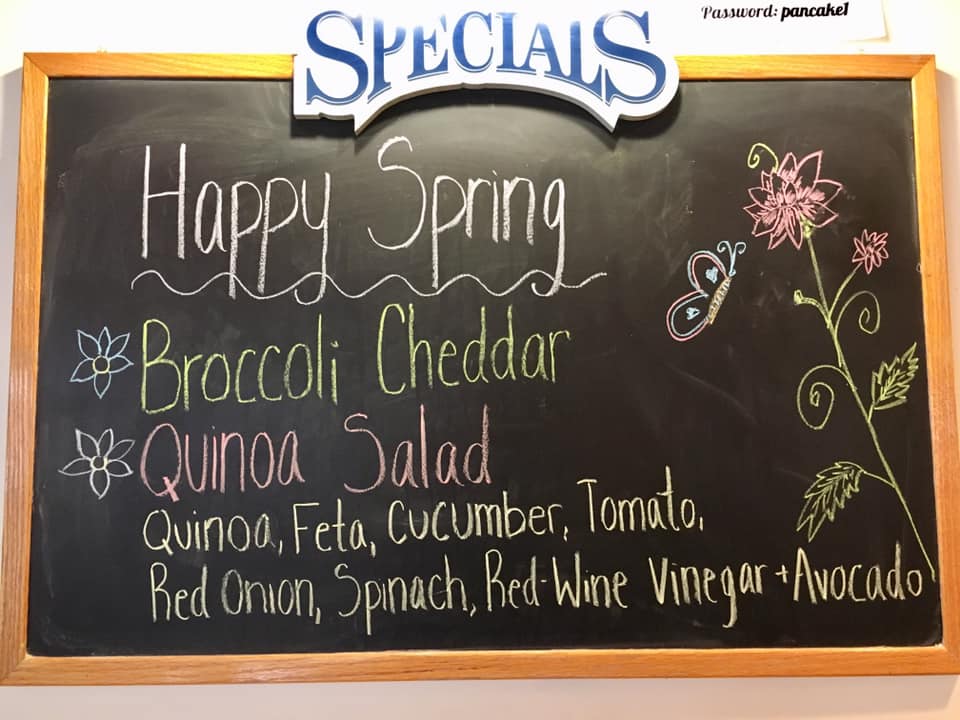 Password: pancake1
SPECIALS
Happy Spring
Broccoli Cheddar
Quinoa Salad
Quinoa, Feta, Cucumber, Tomato,
Red Onion, Spinach, Red-Wine Vinegar + Avocado